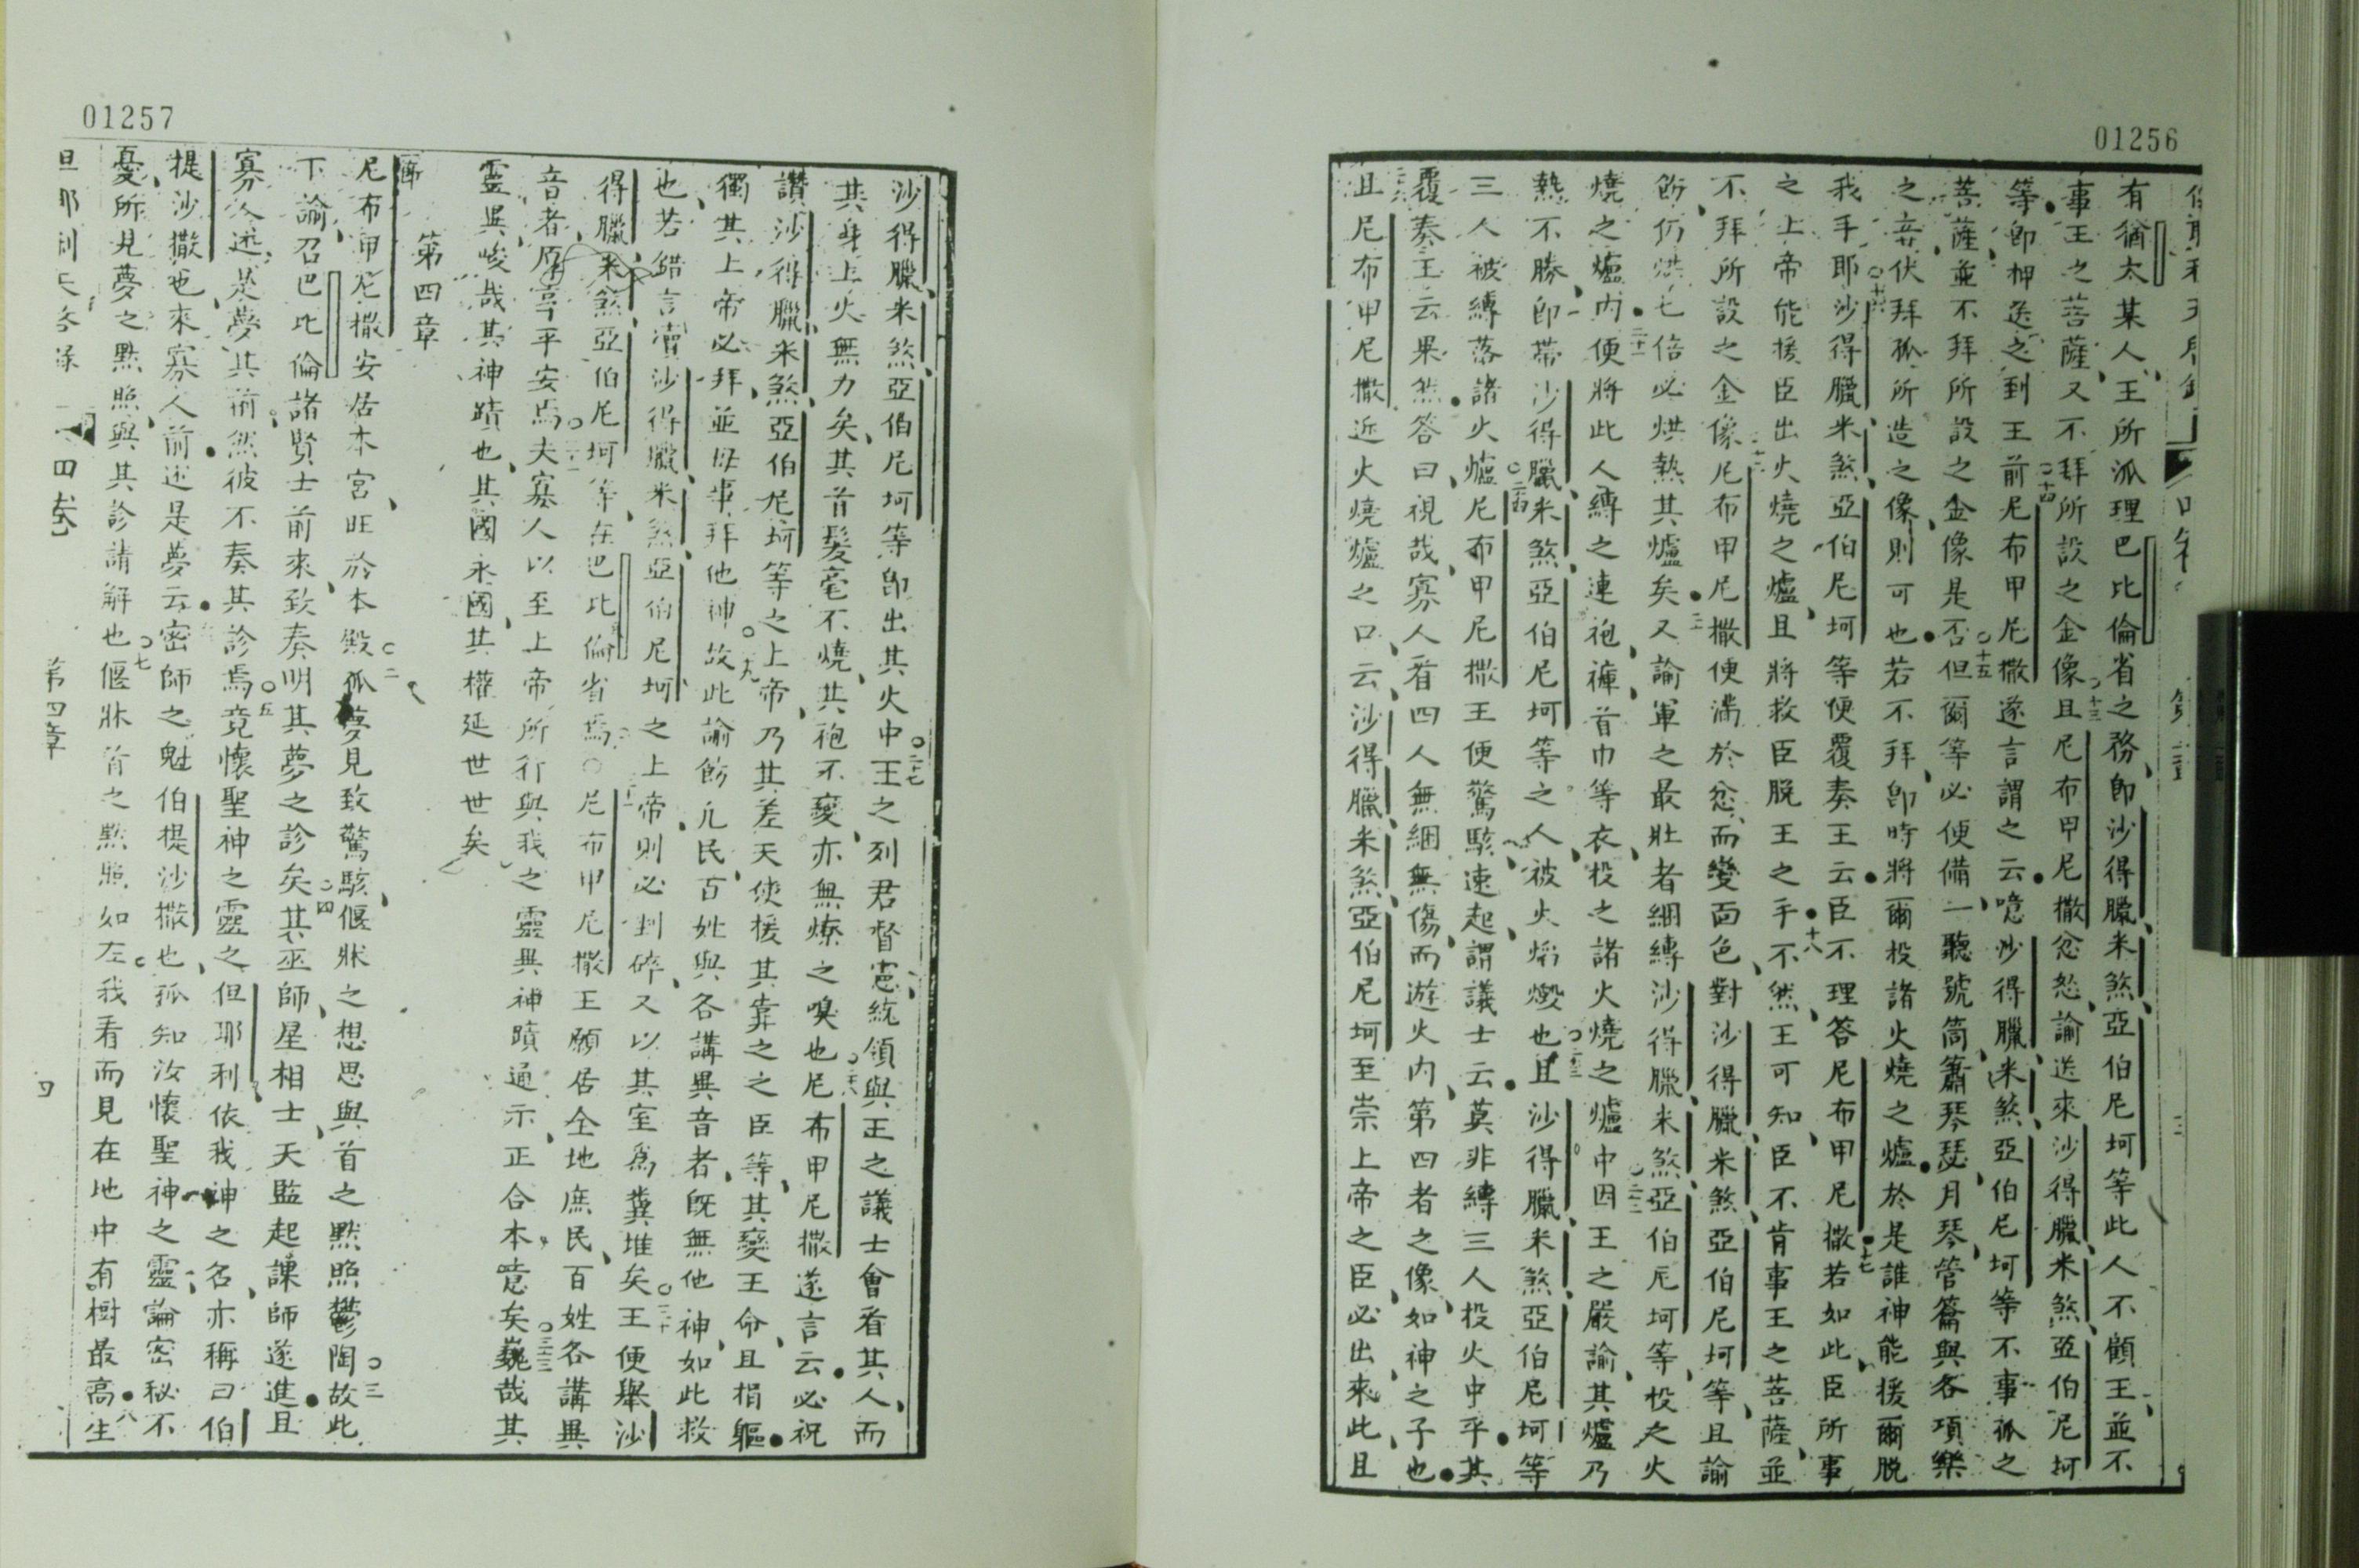 01256
有猶太某人王所派理巴比倫省之務即沙得臘米煞亞伯尼坷等此人不顧王並不
事王之菩薩又不拜所設之金像○十三且尼布甲尼撒忿怒諭送來沙得臘米煞亞伯尼坷
等即押送之到王前○十四尼布甲尼撒遂言謂之云噫沙得臘米煞亞伯尼坷等不事孤之
菩薩並不拜所設之金像是否○十五但爾等必便備一聽號筒簫琴瑟月琴管籥與各項樂
之音伏拜孤所造之像則可也若不拜即時將爾投諸火燒之爐於是誰神能援爾脫
我手耶○十六沙得臘米煞亞伯尼坷等便覆奏王云臣不理答尼布甲尼撒○十七若如此臣所事
之上帝能援臣出火燒之爐且將救臣脫王之手○十八不然王可知臣不肯事王之菩薩並
不拜所設之金像尼布甲尼撒便滿於忿而變面色對沙得臘米煞亞伯尼坷等且諭
飭仍烘七倍必烘熱其爐矣又諭軍之最壯者綑縛沙得臘米煞亞伯尼坷等投之火
燒之爐內○二十一便將此人縛之連袍褲首巾等衣投之諸火燒之爐中○二十二因王之嚴諭其爐乃
熱不勝即帶沙得臘米煞亞伯尼坷等之人被火焰燬也○二十三且沙得臘米煞亞伯尼坷等
三人被縛落諸火爐○二十四尼布甲尼撒王便驚駭速起謂議士云莫非縛三人投火中乎其
覆奏王云果然答曰視哉寡人看四人無綑無傷而遊火內第四者之像如神之子也
且尼布甲尼撒近火燒爐之口云沙得臘米煞亞伯尼坷至崇上帝之臣必出來此且
01257
沙得臘米煞亞伯尼坷等即出其火中○二十七王之列君督憲統領與王之議士會看其人而
其身上火無力矣其首髮毫不燒其袍不變亦無燎之嗅也○二十八尼布甲尼撒遂言云必祝
讚沙得臘米煞亞伯尼坷等之上帝乃其差天使援其靠之之臣等其變王命且捐軀
獨其上帝必拜並毋事拜他神○二十九故此諭飭凡民百姓與各講異音者既無他神如此救
也若錯言瀆沙得臘米煞亞伯尼坷之上帝則必判碎又以其室為糞堆矣○三十王便舉沙
得臘米煞亞伯尼坷等在巴比倫省焉○尼布甲尼撒王願居全地庶民百姓各講異
音者原享平安焉夫寡人以至上帝所行與我之靈異神蹟通示正合本意矣○三十三巍哉其
靈異峻哉其神蹟也其國永國其權延世世矣
第四章
尼布甲尼撒安居本宮旺於本殿○二孤夢見致驚駭偃牀之想思與首之默照鬱陶○三故此
下諭召巴比倫諸賢士前來致奏明其夢之診矣○四其巫師星相士天監起課師遂進且
寡人述是夢其前然彼不奏其診焉○五竟懷聖神之靈之但耶利依我神之名亦稱曰伯
提沙撒也來寡人前述是夢云密師之魁伯提沙撒也孤知汝懷聖神之靈論密秘不
憂所見夢之默照與其診請解也○七偃牀首之默照如左我看而見在地中有樹最高○八生
四卷 第四章 四